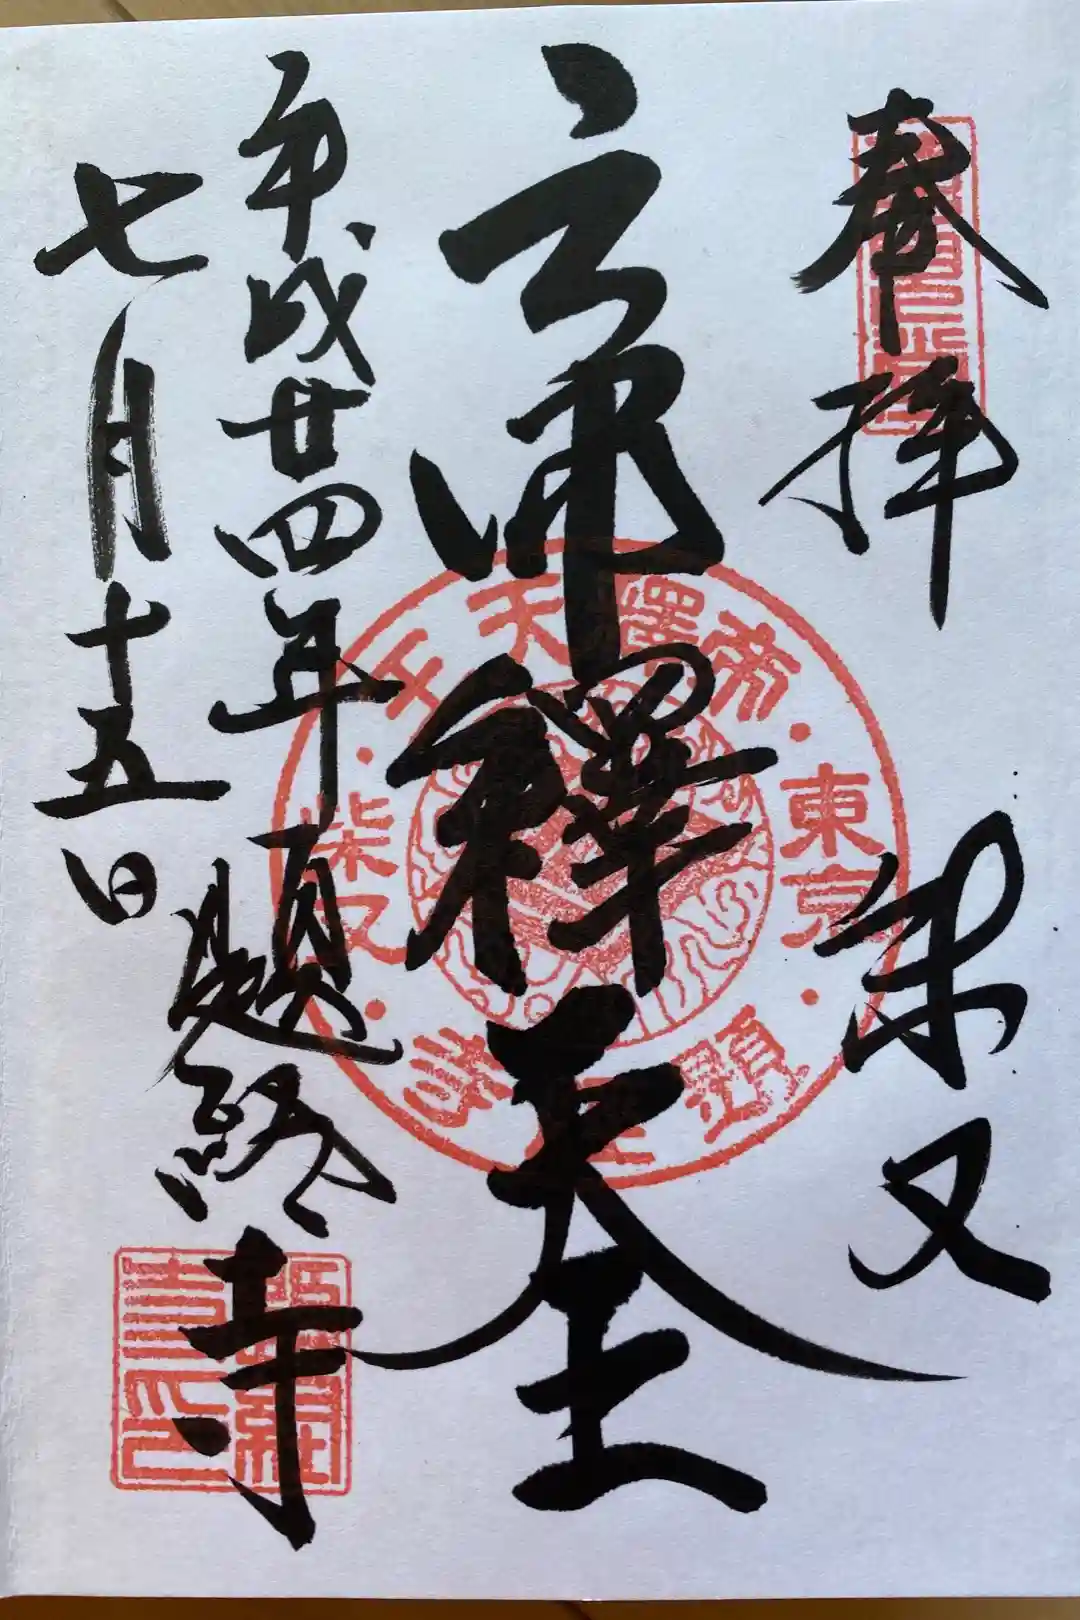 奉拝
柴又
帝釋天王
平成廿四年
七月十五日
題経寺
東京
帝釋天王
柴又
題経寺